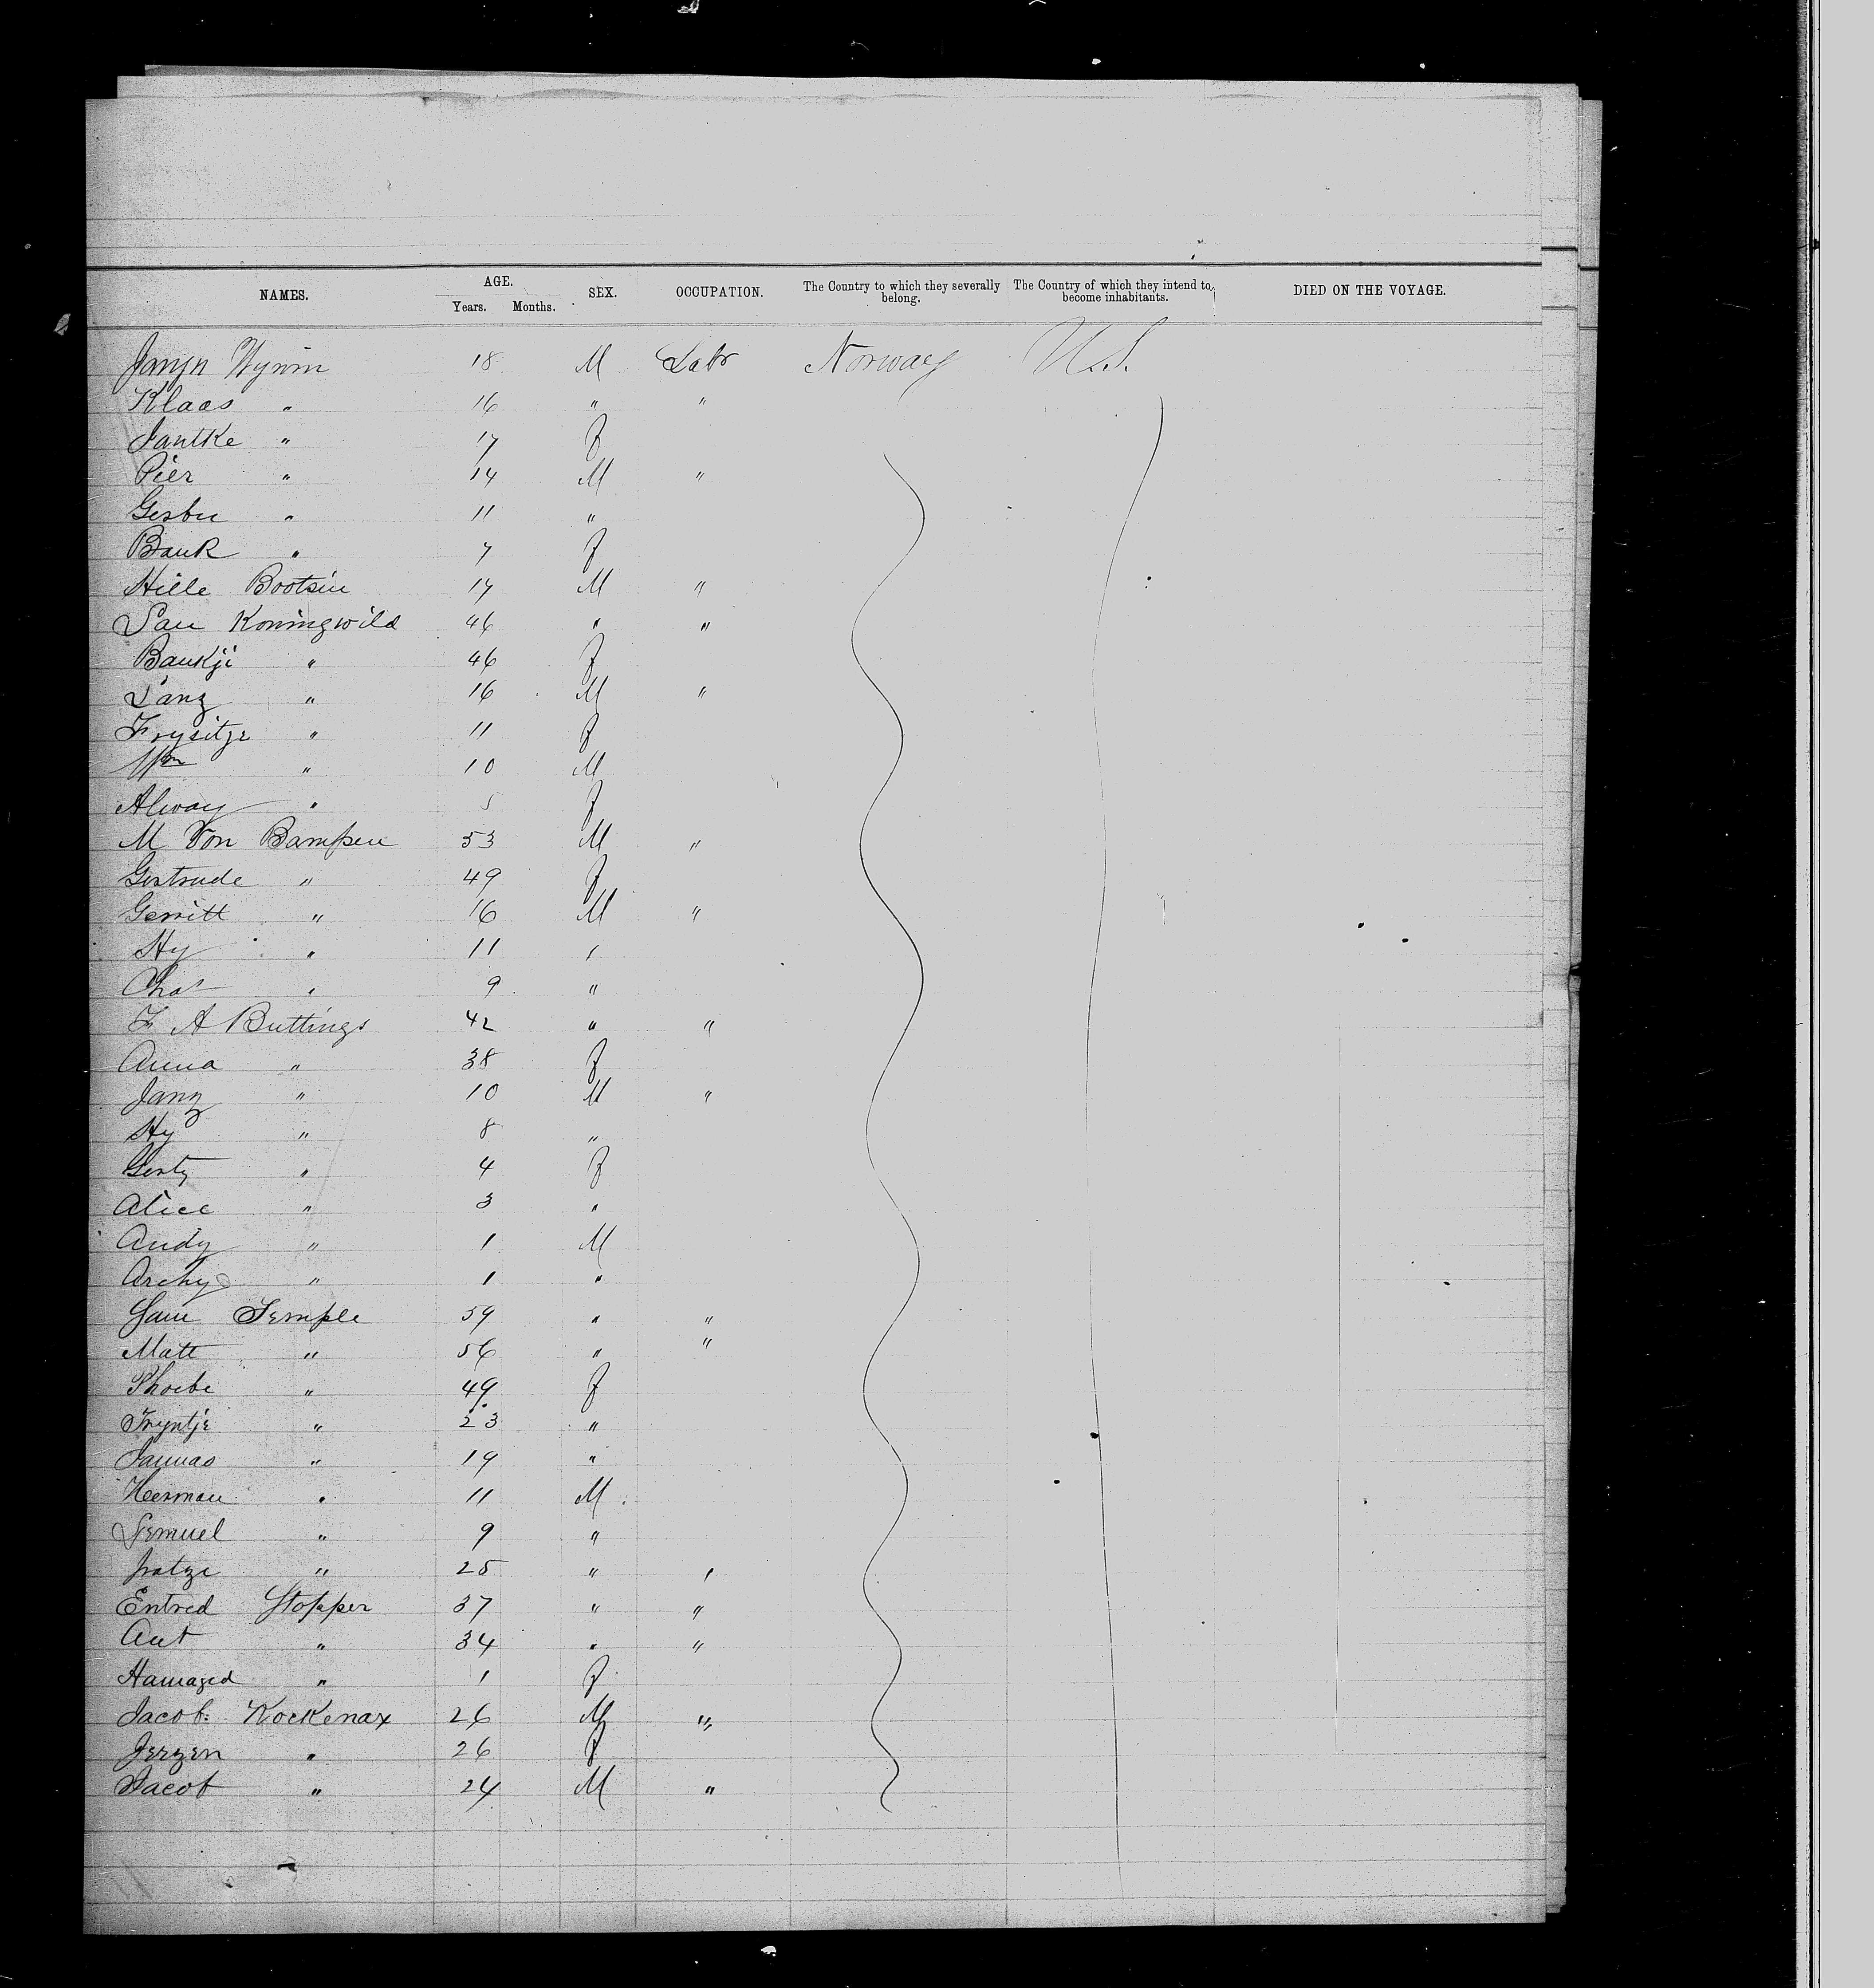 NAMES. AGE. Years. Months. SEX. OCCUPATION. The Country to which they severally belong. The Country of which they intend to become inhabitants. DIED ON THE VOYAGE.
Janyn Wynin 18 M Labr Norway U.S.
Klaas " 16 " "
Jantke " 17 f
Pier " 14 M "
Gesbu " 11 "
Bauk " 7 f
Hille Bootsin 17 M "
San Koningwild 46 " "
Baukji " 46 f
Sanz " 16 M "
Frysitje " 11 f
Wm " 10 M
Alway " 5 f
M Von Bampen 53 M "
Gertrude " 49 f
Gerritt " 16 M "
Hy " 11 "
Chas " 9 "
F A Buttings 42 " "
Anna " 38 f
Janz " 10 M "
Hy " 8 "
Gerty " 4 f
Alice " 3 "
Andy " 1 M
Archy " 1 "
Sam Semple 59 " "
Matt " 56 " "
Phoebe " 49 f
Tryntje " 23 "
Jannas " 19 "
Herman " 11 M
Semuel " 9 "
Jratze " 25 " "
Entred Stopper 37 " "
Ant " 34 " "
Hamazed " 1 f
Jacob Kockenax 26 M "
Jerzen " 26 f
Jacob " 24 M "